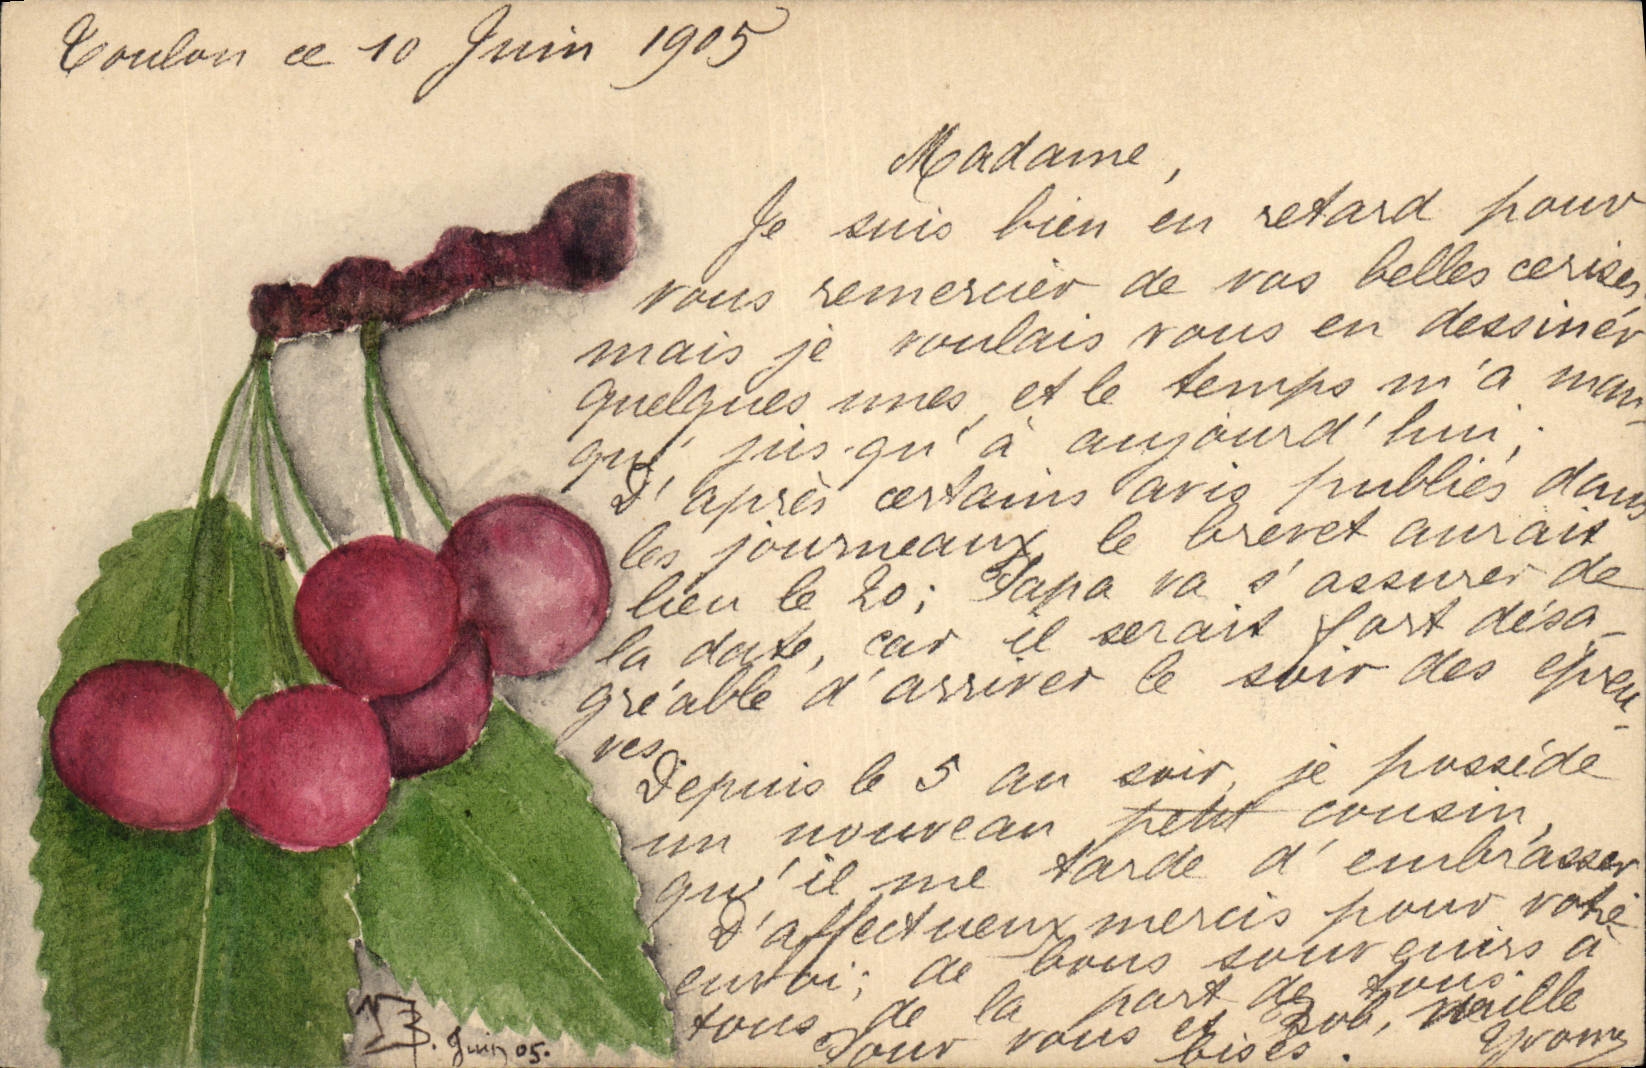 Toulon ce 10 Juin 1905
Madame,
Je suis bien en retard pour
vous remercier de vos belles cerises,
mais je voulais vous en dessiner
quelques unes, et le temps m'a man-
qué jusqu'à aujourd'hui;
D'après certains avis publiés dans
les journeaux le brevet aurait
lieu le 20; Papa va s'assurer de
la date, car il serait fort désa-
gréable d'arriver le soir des épreu-
ves
Depuis le 5 au soir, je possède
un nouveau petit cousin,
qu'il me tarde d'embrasser
D'affectueux mercis pour votre
envoi; de bons souvenirs à
tous de la part de tous.
Pour vous et Bob, mille
bises. Yvonne
B. Juin 05.